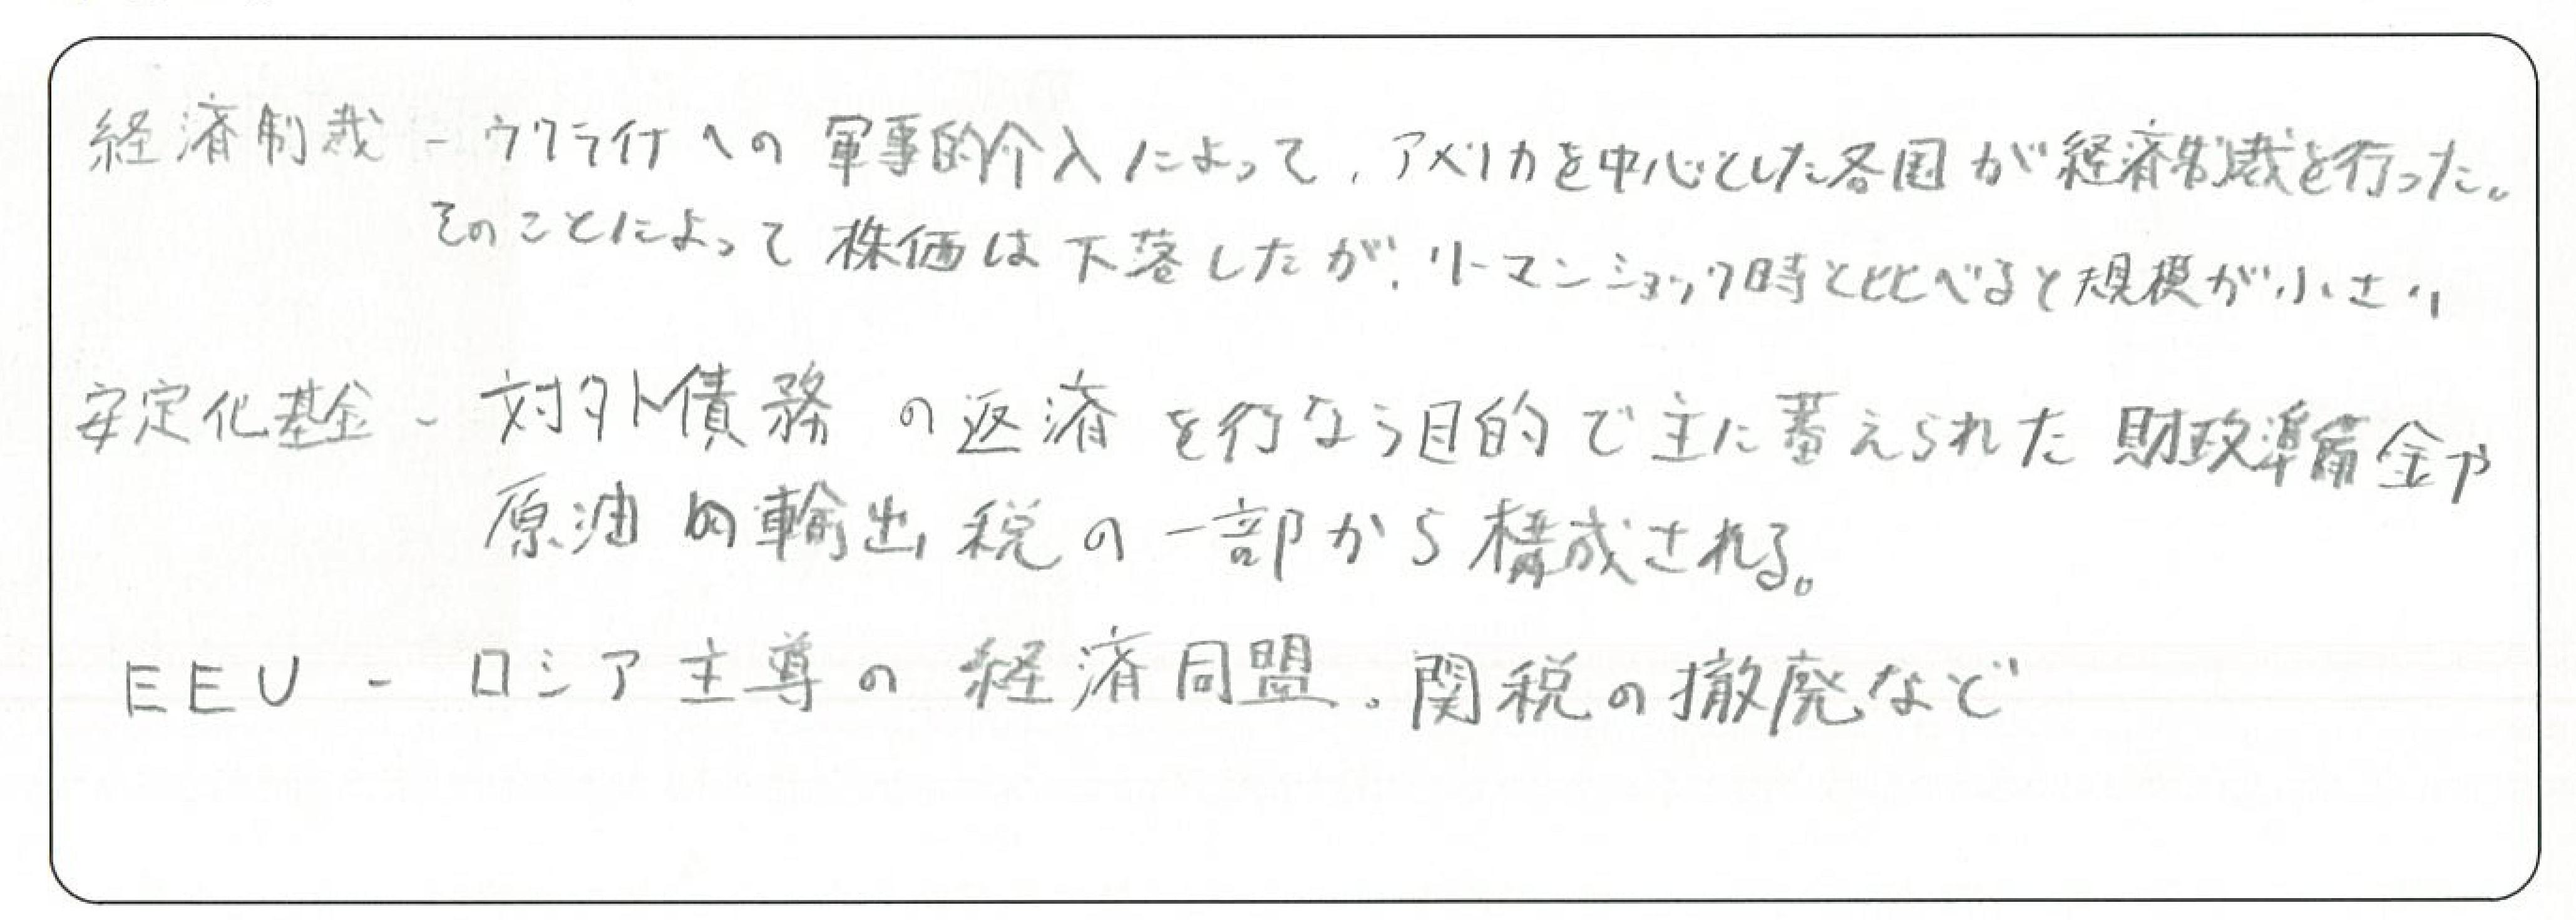 経済制裁 - ウクライナへの軍事的介入によって、アメリカを中心とした各国が経済制裁を行った。
そのことによって株価は下落したが、リーマンショック時と比べると規模が小さい
安定化基金 - 対外債務の返済を行なう目的で主に蓄えられた財政準備金や
原油の輸出税の一部から構成される。
EEU - ロシア主導の経済同盟。関税の撤廃など